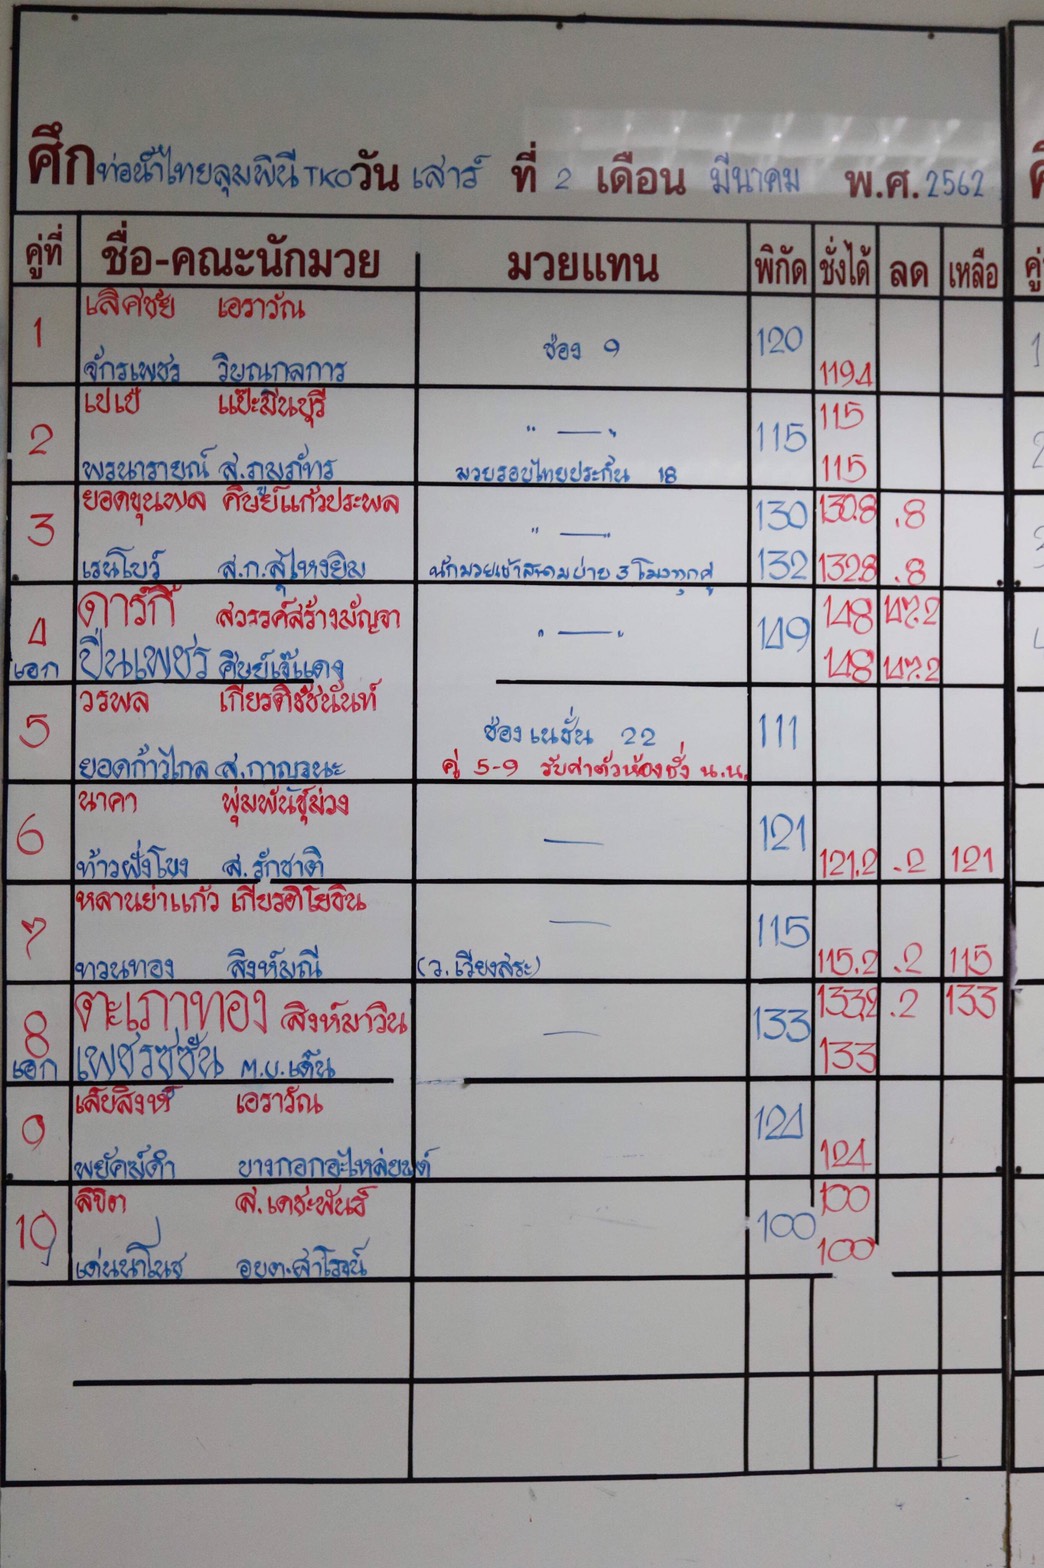 ศึกท่อน้ำไทยลุมพินีTKOวัน เสาร์ ที่ 2 เดือน มีนาคม พ.ศ.2562
คู่ที่ ชื่อ-คณะนักมวย มวยแทน พิกัด ชั่งได้ ลด เหลือ
1 เลิศชัย เอราวัณ
ช่อง 9 120
จักรเพชร วิบูณกลการ 119.4
2 เปเป้ แป๊ะมีนบุรี 115
" — " 115
พรนารายณ์ ส.ภูมภัทร มวยรอบไทยประกัน 18 115
3 ยอดขุนพล ศิษย์แก้วประพล 130 130.8 .8
" — "
เรนโบว์ ส.ก.สุไหงยิม นักมวยเข้าสนามบ่าย 3 โมงทุกคู่ 132 132.8 .8
4 ดาร์กี้ สวรรค์สร้างมัญจา 148 147.2
" — " 149
เอก ปืนเพชร ศิษย์เจ๊แดง 148 147.2
5 วรพล เกียรติชัชนันท์
ช่อง เนชั่น 22 111
ยอดก้าวไกล ส.กาญจนะ คู่ 5-9 รับค่าตัวห้องชั่ง น.น.
6 นาคา พุ่มพันธุ์ม่วง
— 121
ท้าวฝั่งโขง ส.รักชาติ 121.2 .2 121
7 หลานย่าแก้ว เกียรติโยธิน
— 115
ทวนทอง สิงห์มณี (ว.เวียงสระ) 115.2 .2 115
8 ตะเภาทอง สิงห์มาวิน 133.2 .2 133
— 133
เอก เพชรซูซัน ม.บ.เด้น 133
9 เสือสิงห์ เอราวัณ
124
พยัคฆ์ดำ บางกอกอะไหล่ยนต์ 124
10 ลิขิต ส.เดชะพันธ์ 100
100
เด่นนำโนช อบต.สำโรงน์ 100